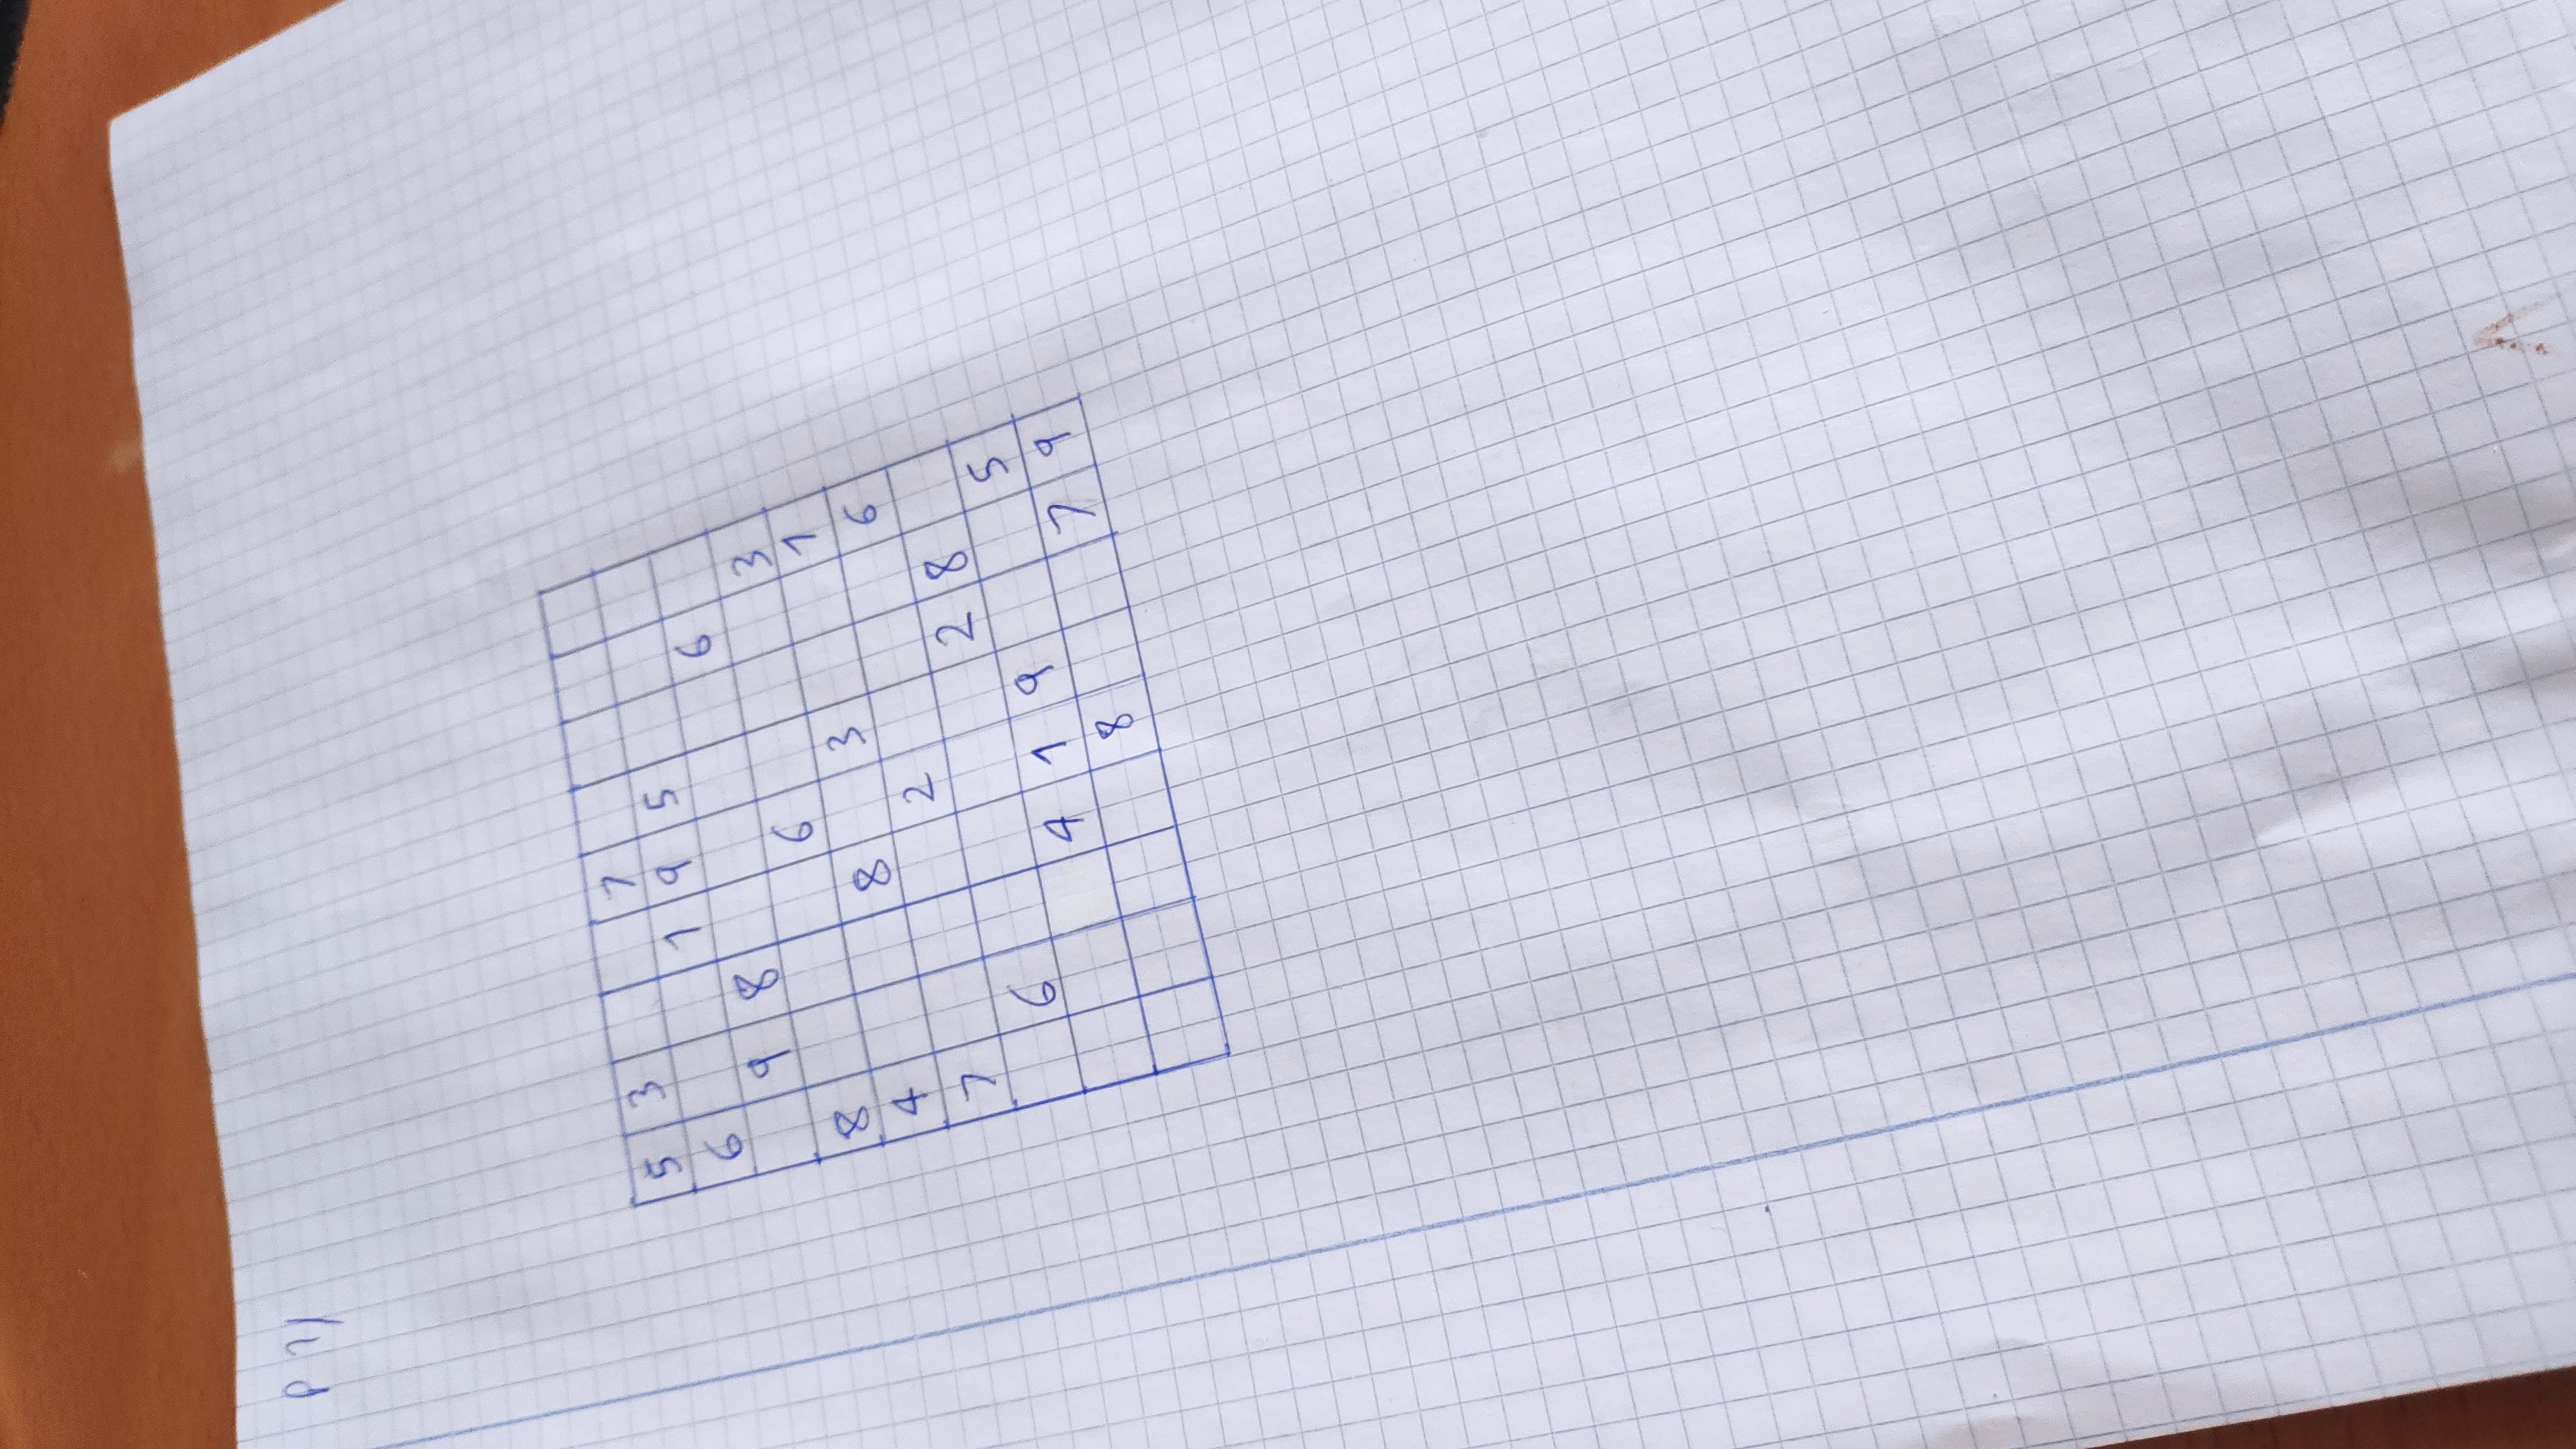 P 7)
5 3 7
6 1 9 5
9 8 6
8 6 3
4 8 3 1
7 2 6
6 2 8
4 1 9 5
8 7 9